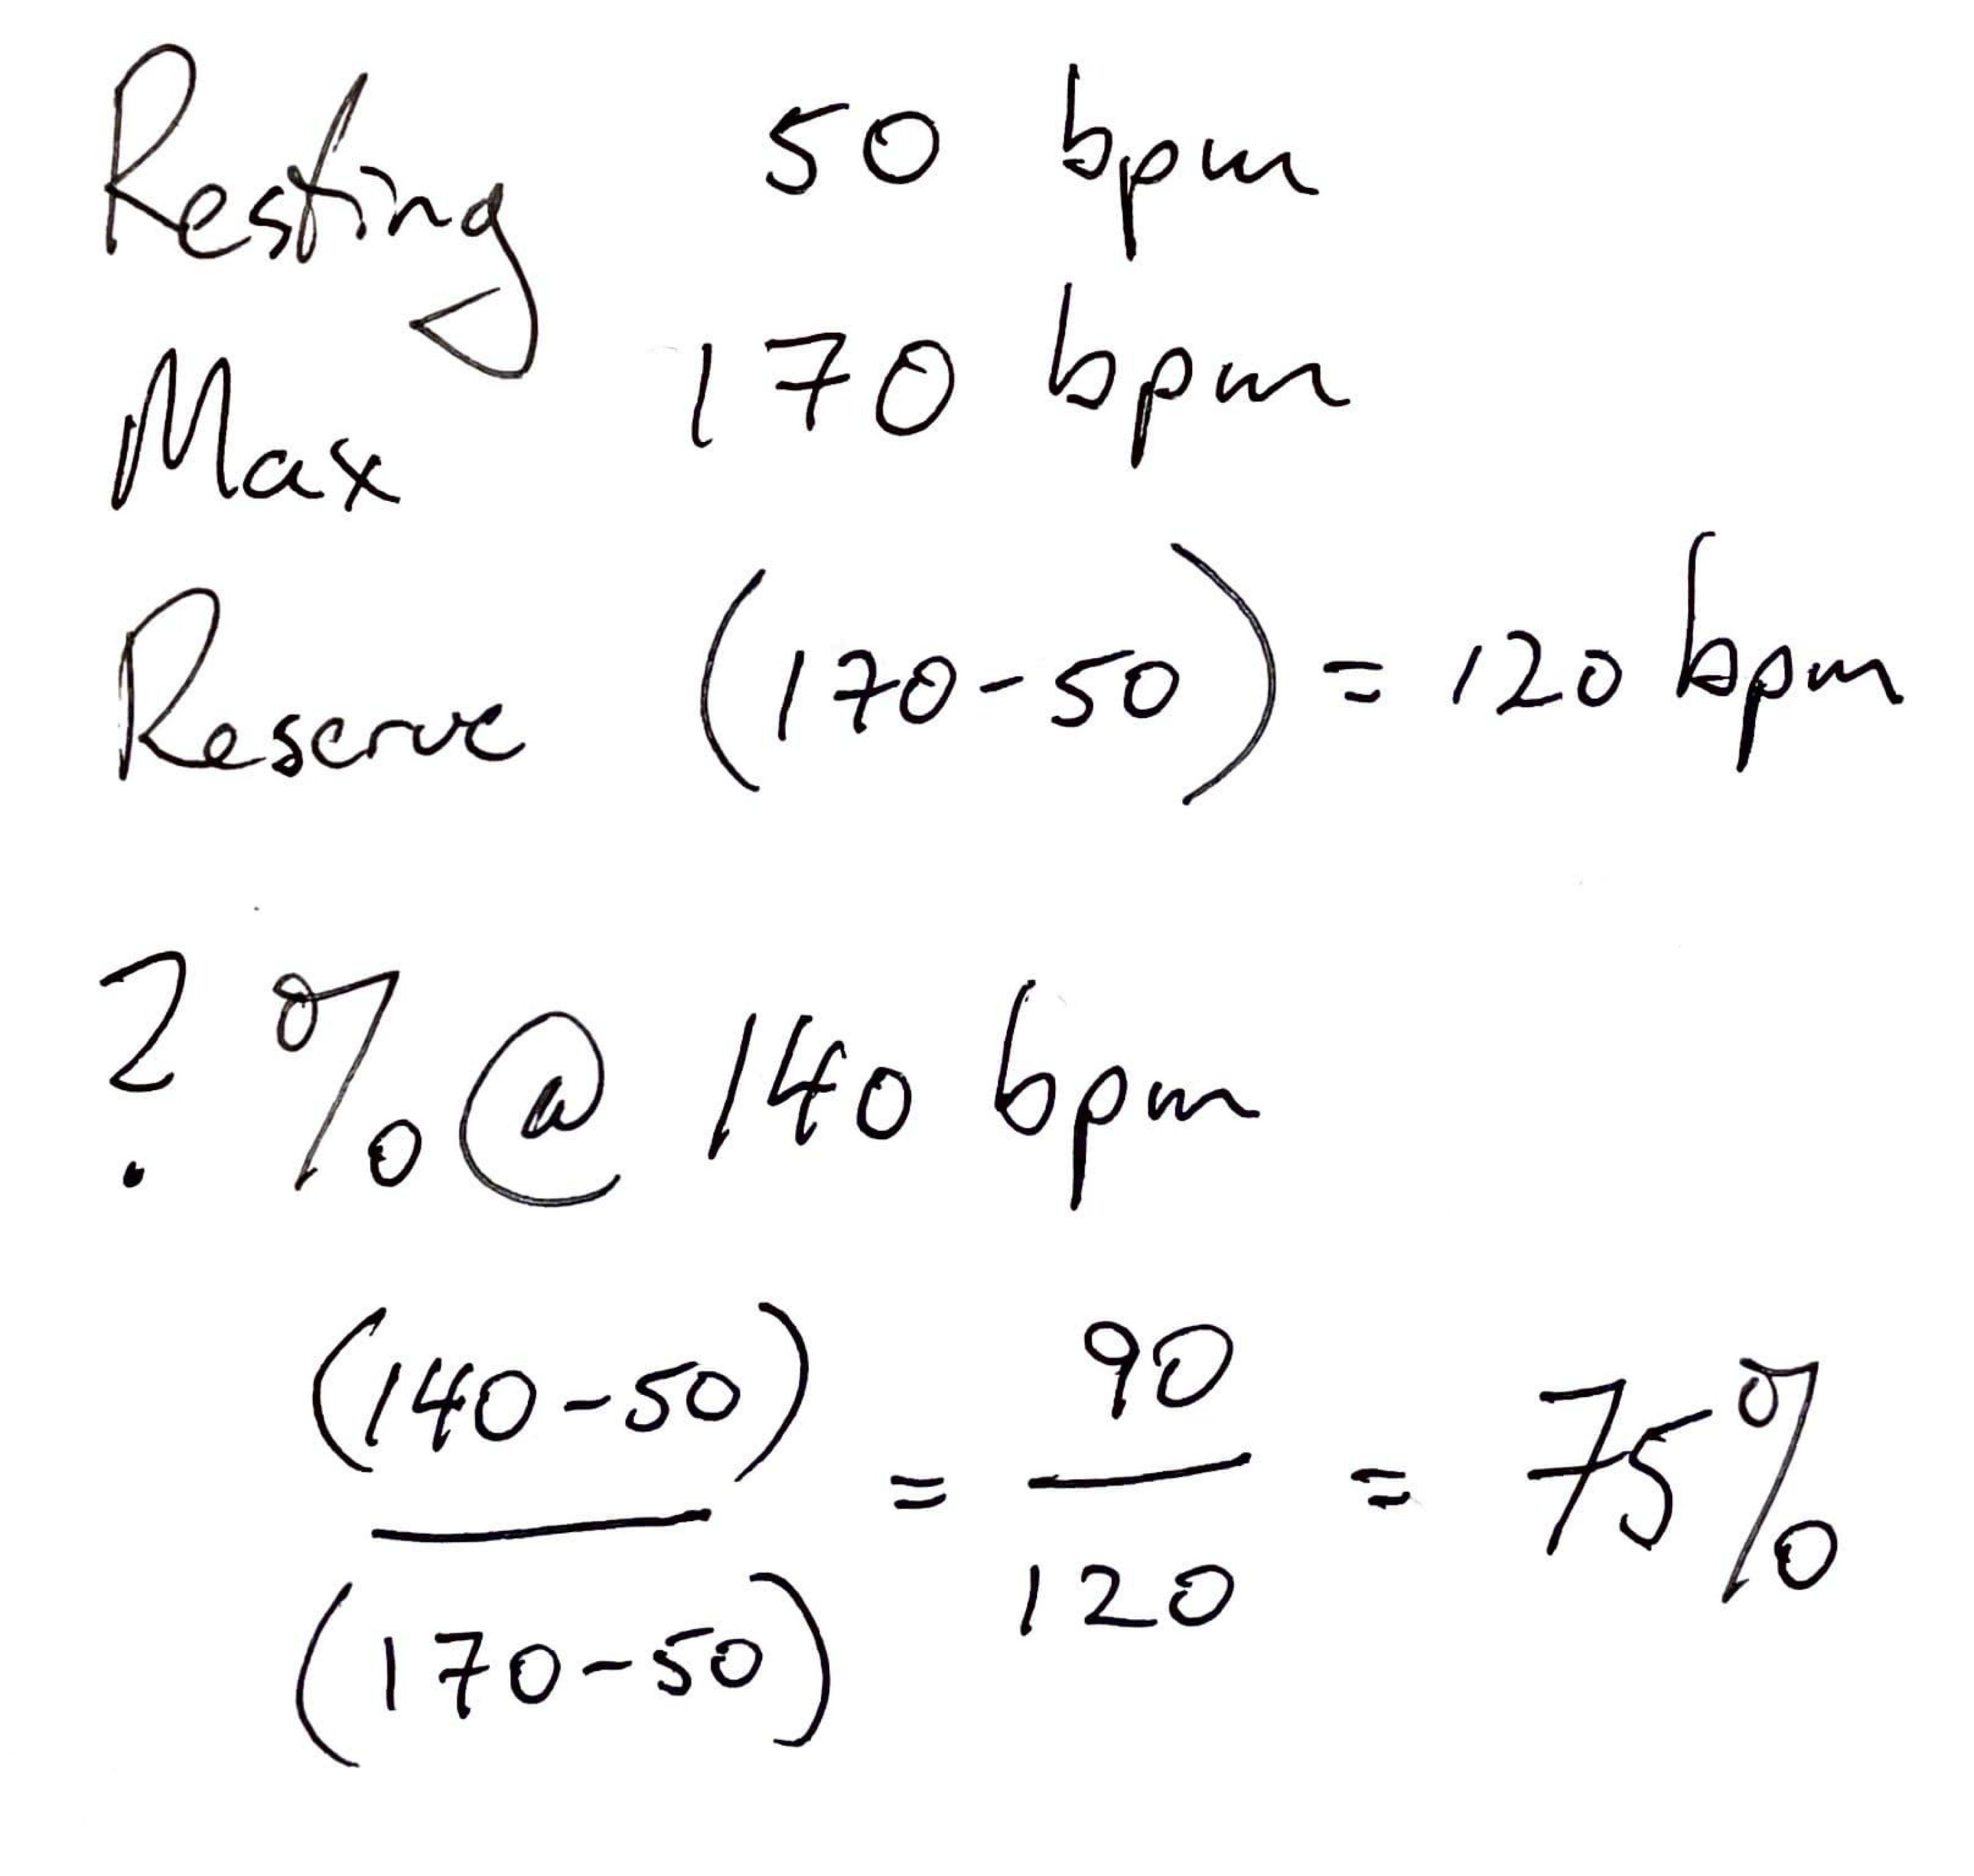 Resting 50 bpm
Max 170 bpm
Reserve (170-50) = 120 bpm
? % @ 140 bpm
(140-50) / (170-50) = 90 / 120 = 75%